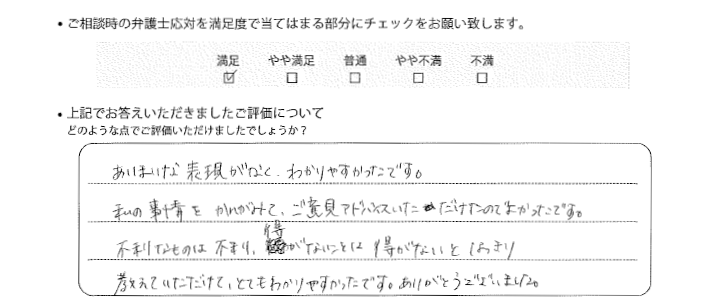 • ご相談時の弁護士応対を満足度で当てはまる部分にチェックをお願い致します。
満足 やや満足 普通 やや不満 不満
☑ □ □ □ □
• 上記でお答えいただきましたご評価について
どのような点でご評価いただけましたでしょうか？
あいまいな表現がなく、わかりやすかったです。
私の事情をかんがみて、ご意見アドバンスいただけたのでよかったです。
不利なものは不利、得がないことは得がないとはっきり
教えていただけて、とてもわかりやすかったです。ありがとうございました。